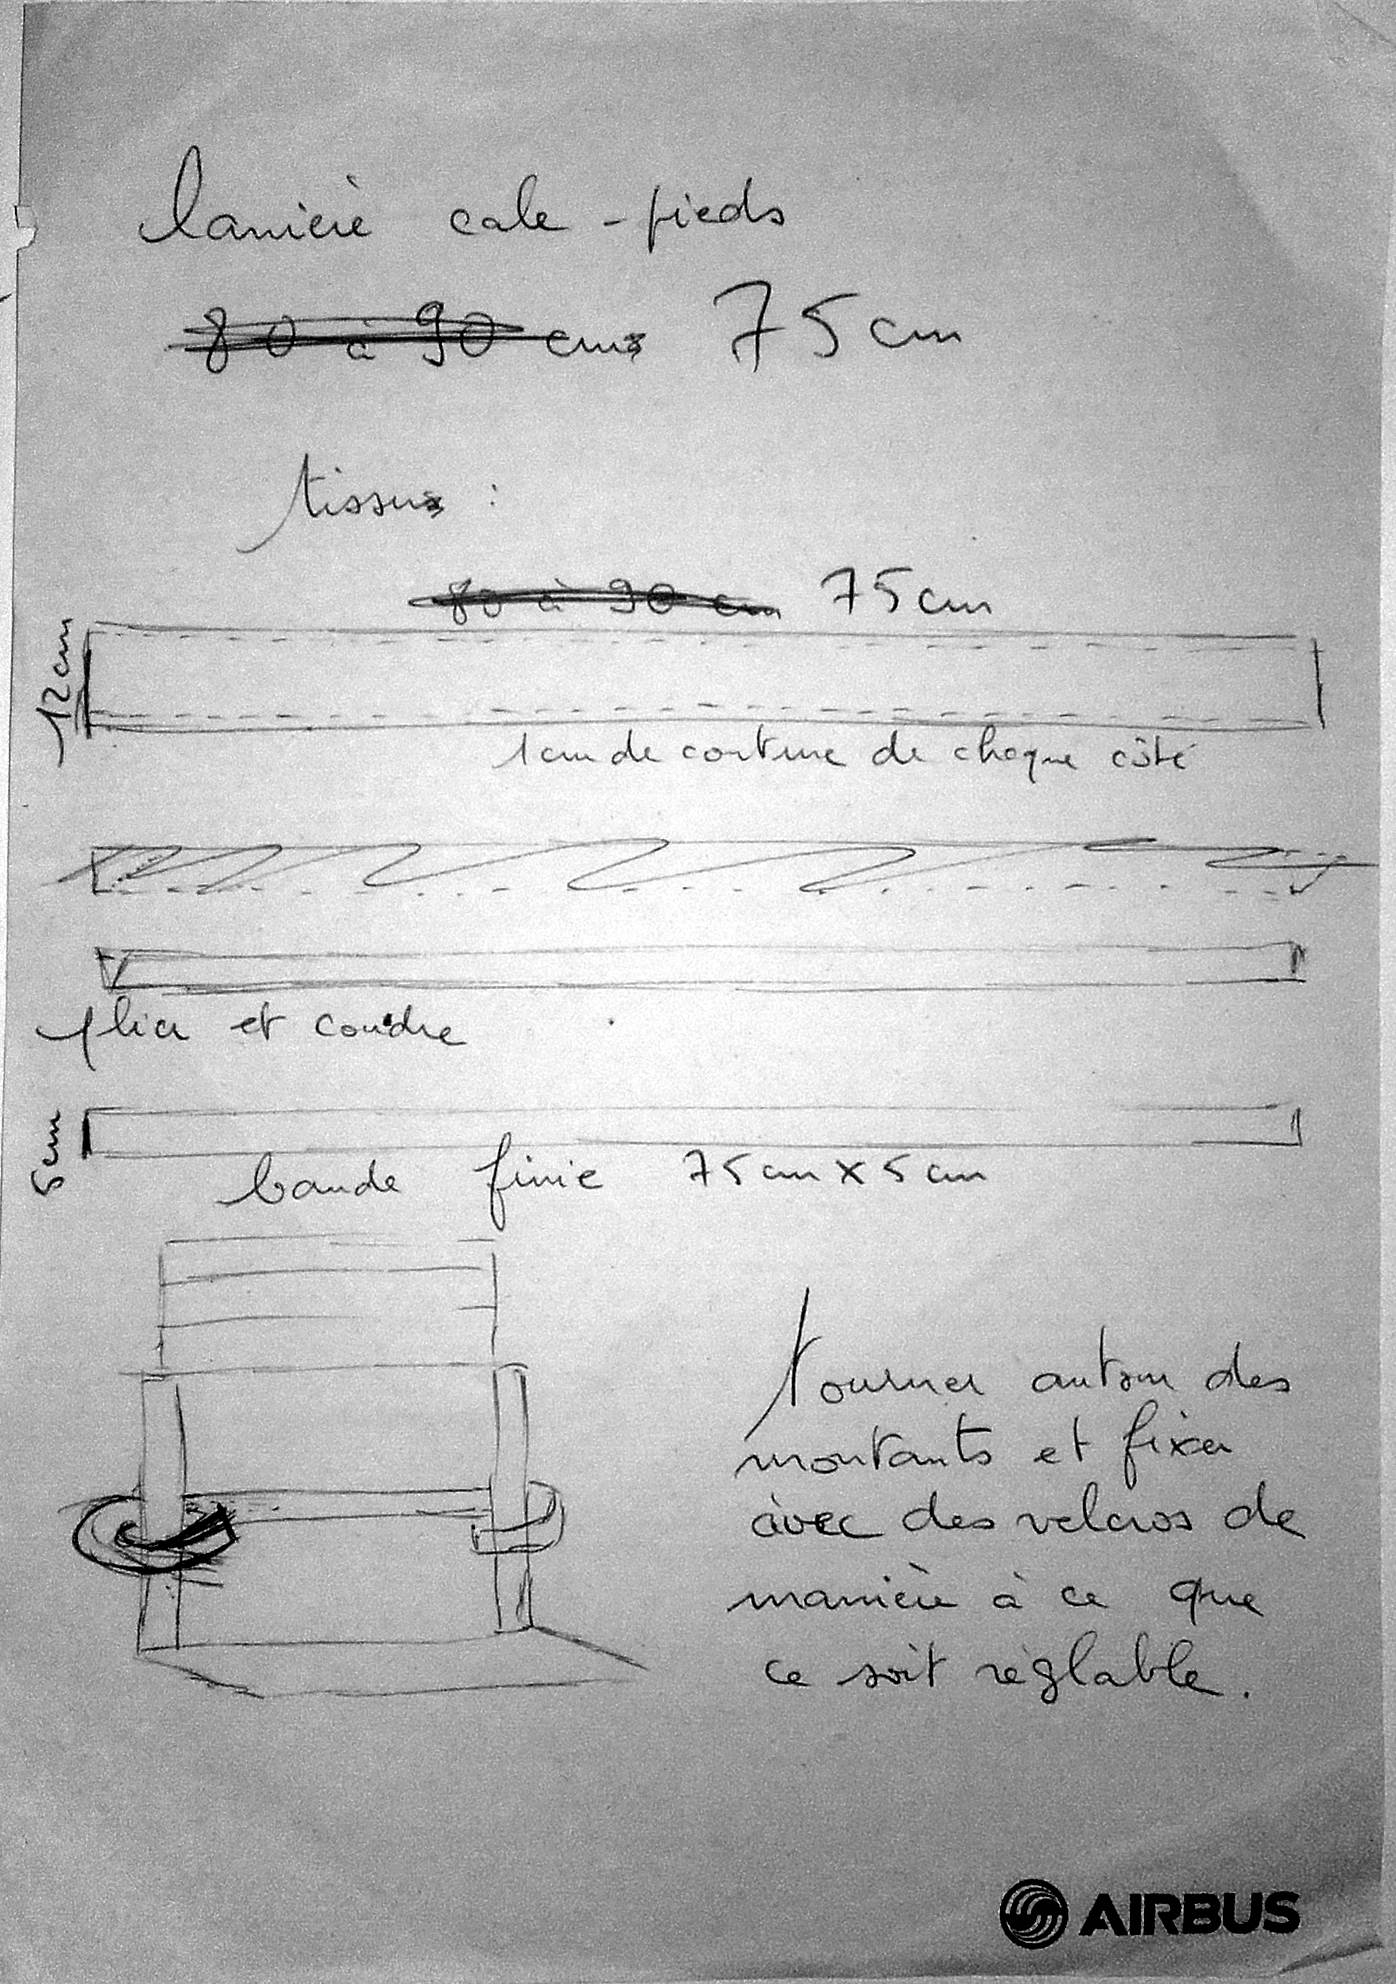 lanière cale-pieds
80 à 90 cm 75cm
tissu :
80 à 90 cm 75cm
12cm
1cm de couture de chaque côté
plier et coudre
5cm
bande finie 75cm x 5cm
tourner autour des
montants et fixer
avec des velcros de
manière à ce que
ce soit réglable.
AIRBUS